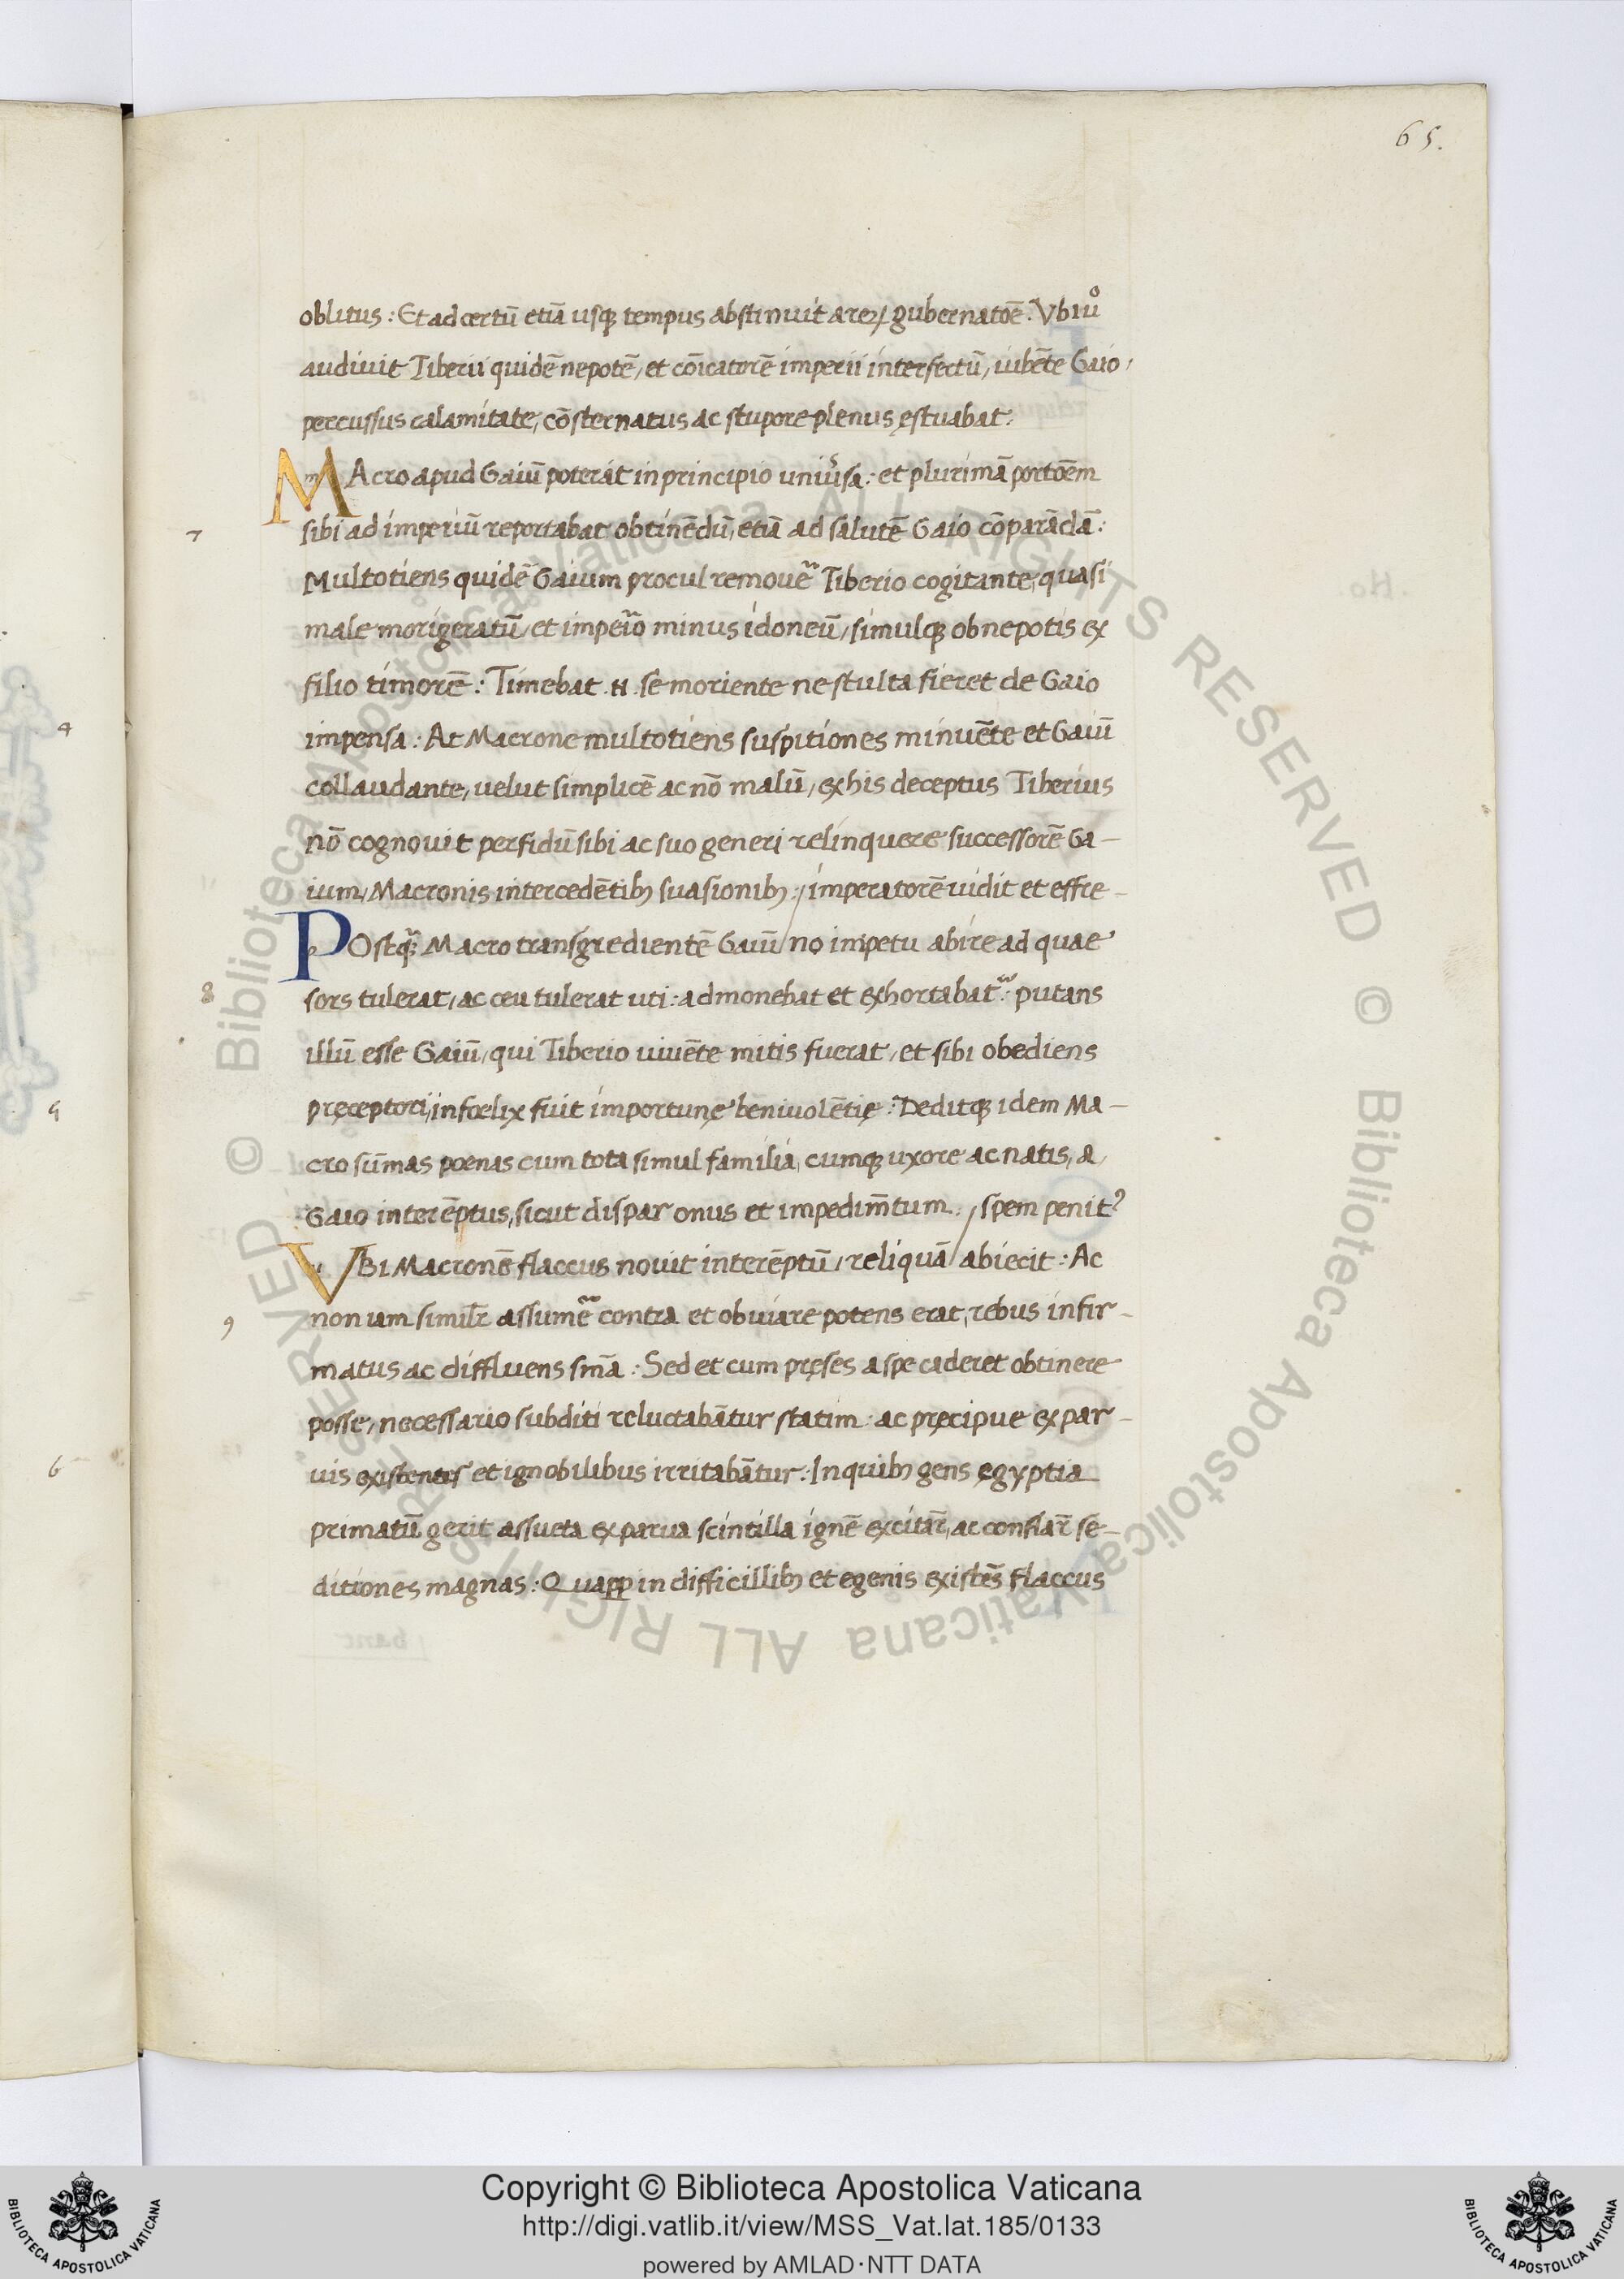 65.
oblitus : Et ad certū etiā usq; tempus abstinuit a reꝝ gubernatōē . Vbi uº
audiuit Tiberii quidē nepotē, et cōicatorē imperii interfectū, iubēte Gaio,
percussus calamitate, cōsternatus ac stupore plenus ęstuabat :
MAcro apud Gaiū poterat in principio uniúsa : et plurimā portōem
7 sibi ad imperiū reportabat obtinēdū, etiā ad salutē Gaio cōparādā :
Multotiens quidē Gaium procul remouē Tiberio cogitante, quasi
male morigeratū, et impeio minus idoneū, simulq; ob nepotis ex
filio timorē : Timebat .n. se moriente ne stulta fieret de Gaio
impensa : At Macrone multotiens suspitiones minuēte et Gaiū
collaudante, uelut simplicē ac nō malū, ex his deceptus Tiberius
nō cognouit perfidū sibi ac suo generi relinquere successorē Ga-
ium, Macronis intercedētib; suasionib; : / imperatorē uidit et effre-
POstq̃ Macro transgredientē Gaiū / no impetu abire ad quae
8 sors tulerat, ac ceu tulerat uti : admonebat et exhortabat : putans
illū esse Gaiū, qui Tiberio uiuēte mitis fuerat, et sibi obediens
pręceptori, infœlix fuit importunę beniuolētię : Deditq; idem Ma-
cro sūmas poenas cum tota simul familia, cumq; uxore ac natis, a
Gaio interēptus, sicut dispar onus et impedim̄tum : / spem penit?
VBI Macronē flaccus nouit interēptū, reliquā / abiecit : Ac
9 non iam simil̃r assumē contra et obuiare potens erat, rebus infir-
matus ac diffluens sm̄a : Sed et cum pręses a spe caderet obtinere
posse, necessario subditi reluctabātur statim : ac pręcipue ex par-
uis existentes et ignobilibus irritabātur : In quib; gens ęgyptia
primatū gerit assueta ex parua scintilla ignē excitar̄, ac conflar̄ se-
ditiones magnas : Quapp in difficillib; et egenis existēs flaccus
4
5
6
Copyright © Biblioteca Apostolica Vaticana
http://digi.vatlib.it/view/MSS_Vat.lat.185/0133
powered by AMLAD·NTT DATA
BIBLIOTECA APOSTOLICA VATICANA
BIBLIOTECA APOSTOLICA VATICANA
© Biblioteca Apostolica Vaticana ALL RIGHTS RESERVED © Biblioteca Apostolica Vaticana ALL RIGHTS RESERVED